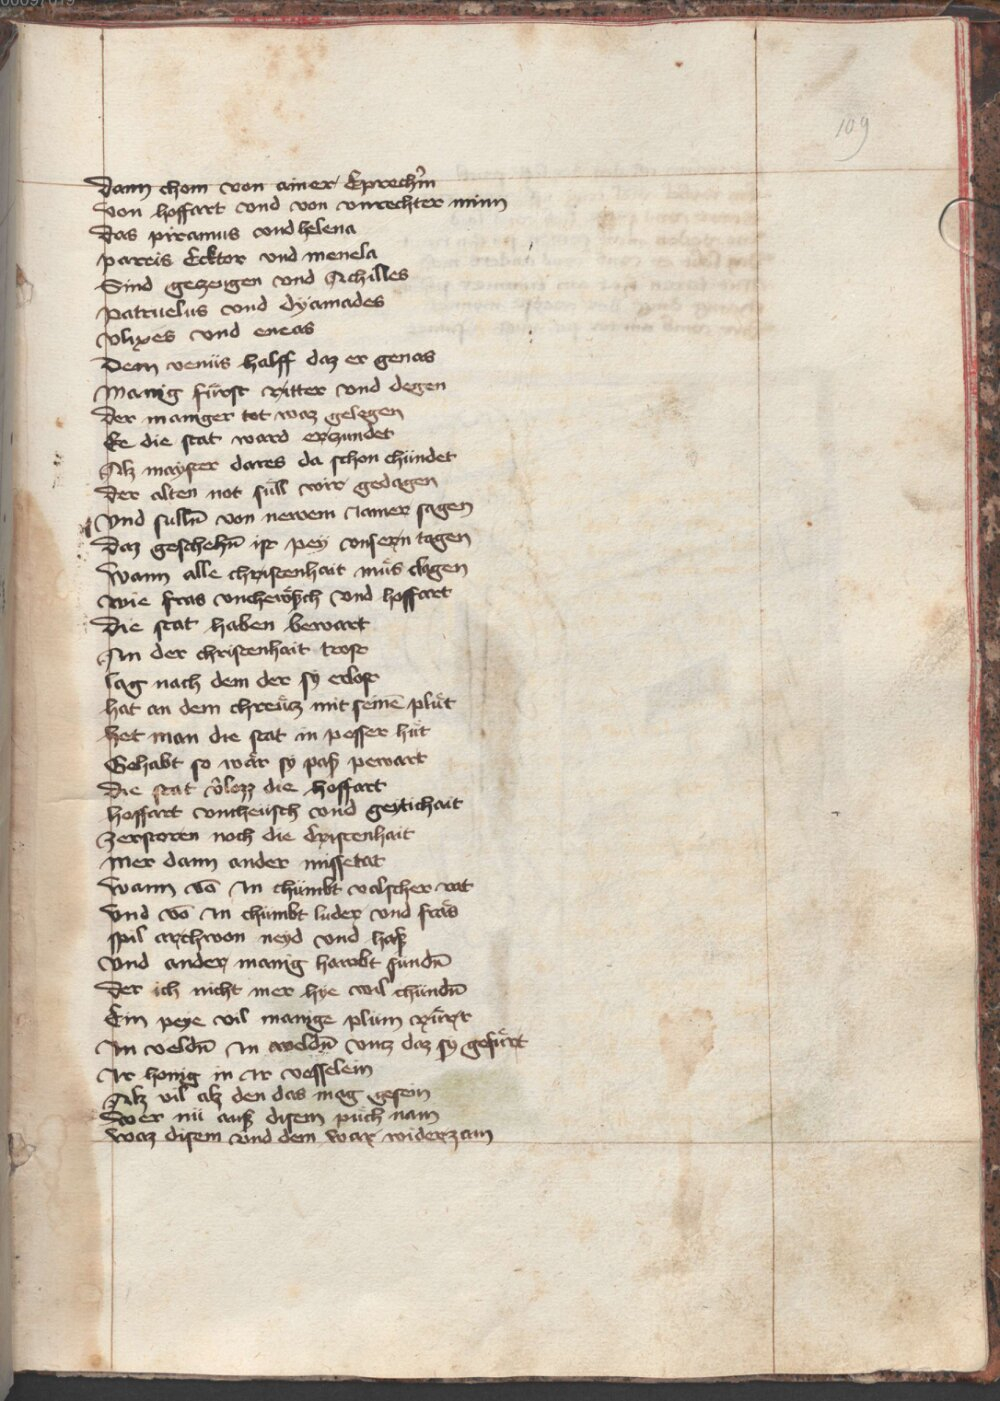 109
Dann chom von ainer Eprech͛in
Von hoffart vnd von vnrechter minn
Das piramus vnd helena
pareis Ecktor vnd menela
Sind geczeugen vnd Achilles
patruelus vnd dyamades
vlixes vnd eneas
Dem venüs halff daz er genas
Manig fürst ritter vnd degen
Der maniger tot waz gelegen
Ee die stat ward erczundet
Alz mayster dares da schon chündet
Der alten not süll wir gedagen
Vnd sulln̄ von newem Jamer sagen
Daz geschehn̄ ist pey vnsern tagen
Wann alle christenhait müs clagen
Wie fras vncheẅsch vnd hoffart
Die stat haben bewart
An der christenhait trost
lag nach dem der sy erlost
hat an dem chreücz mit seinē plůt
het man die stat in pesser hüt
Gehabt so wär sy paß pewart
Die stat v̂lozz die hoffart
hoffart vncheüsch vnd geytichait
Zerstoren noch die Cristenhait
Mer dann ander missetat
Wann vō In chümbt valscher rat
Vnd vō In chümbt luder vnd fräs
spil archwon neyd vnd haß
Vnd ander manig hawbt sundn̄
Der ich nicht mer hye wil chündn̄
Ein peye vil manige plüm rürt
In veldn̄ In weldn̄ vncz daz sy gefürt
Ir honig in Ir vesselein
Alz vil alz den das mag gesein
Wer nü auß disem püch nam
Waz disem vnd dem war widerzam